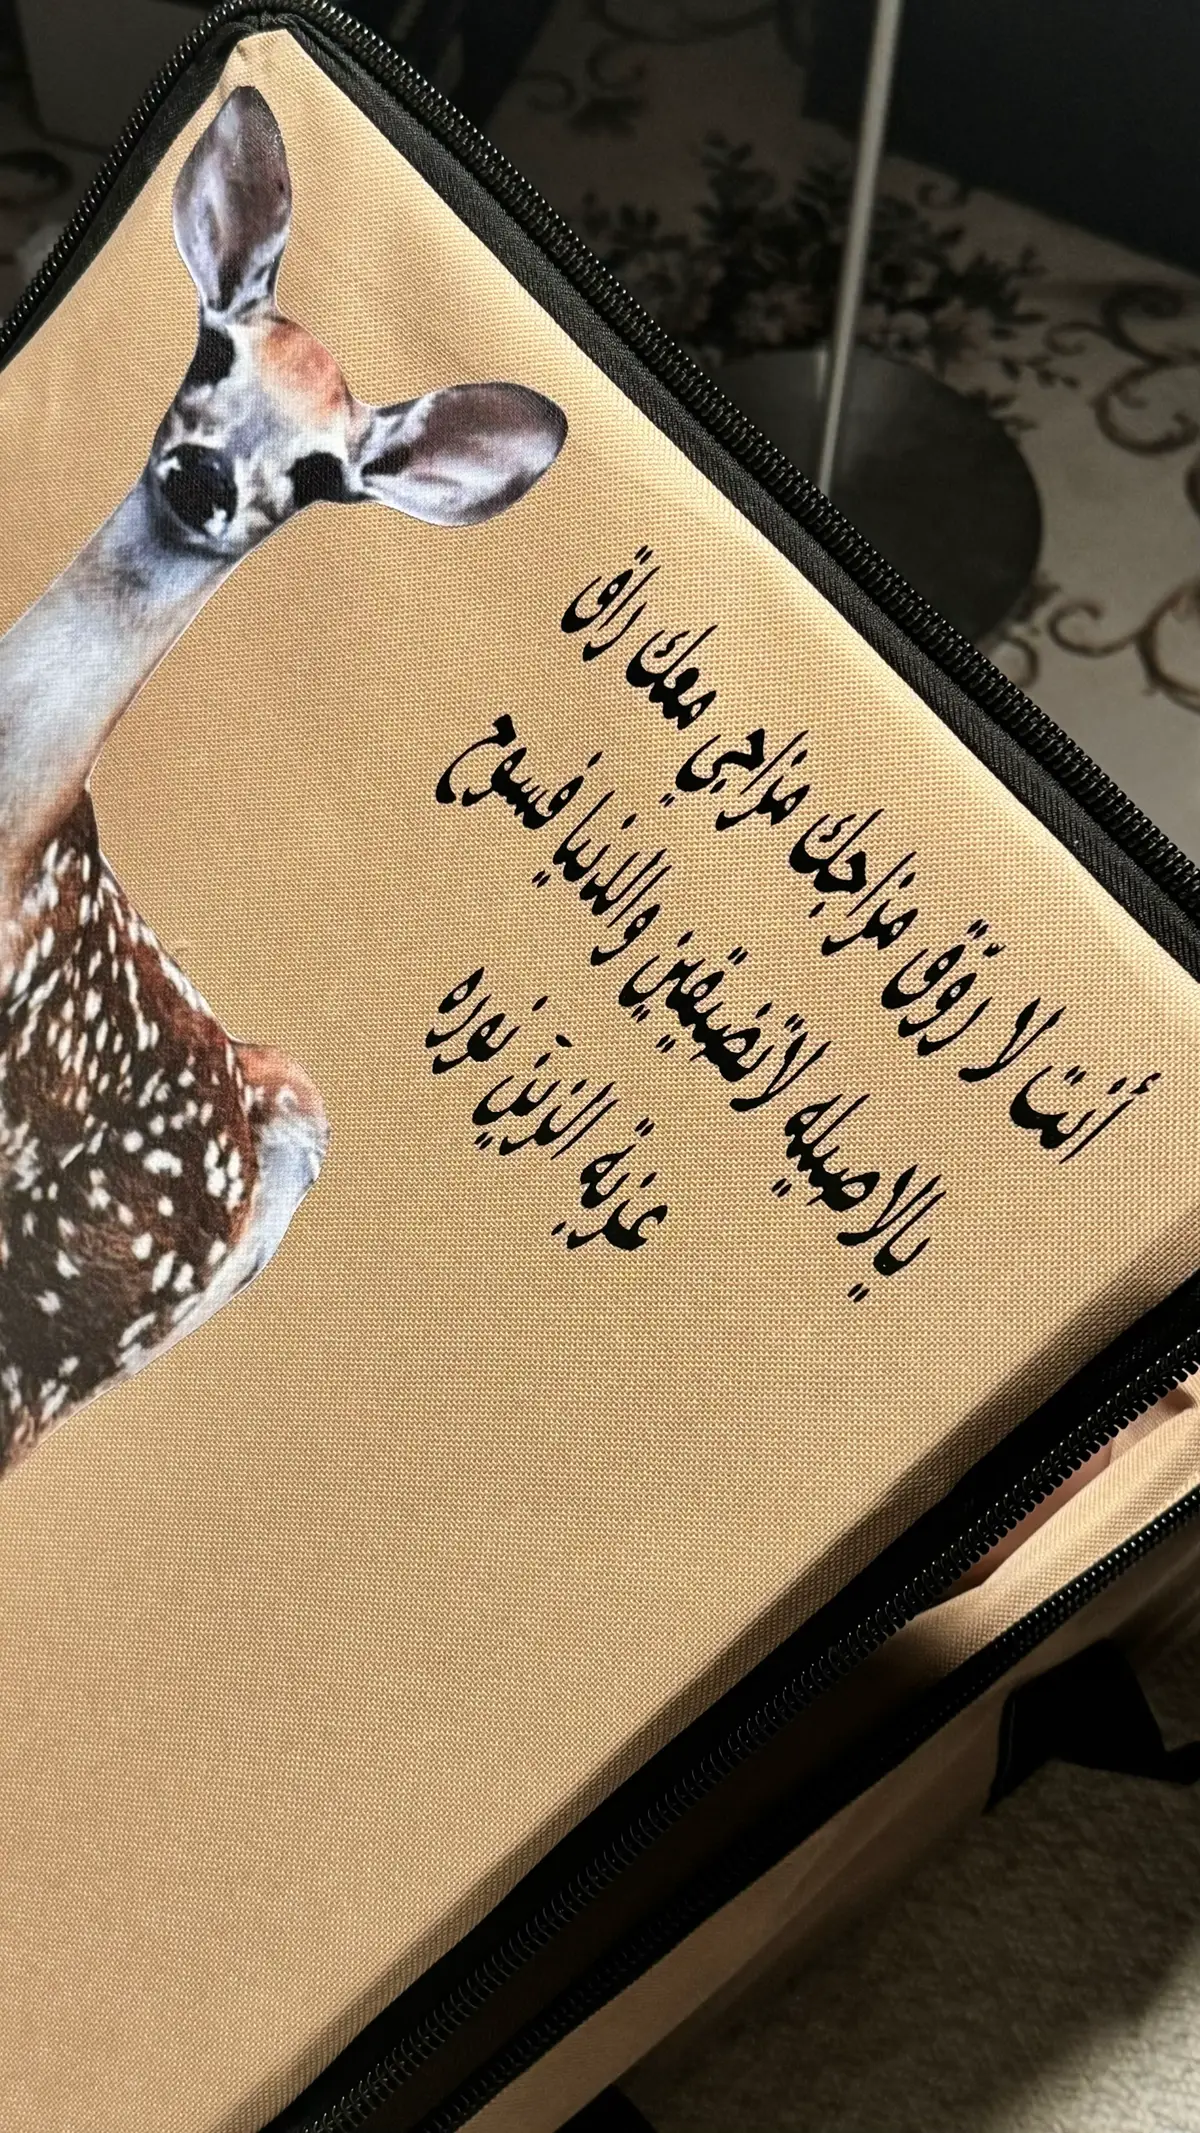 أنت لا روّق مزاجك مزاجي معك راق
يالاصيله لاتضيقين والدنيا فسوح
عزبة الزين نوره